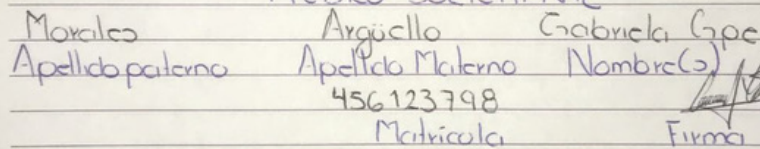 Morales Argüello Gabriela Gpe
Apellido paterno Apellido Materno Nombre(s)
456123798
Matricola Firma